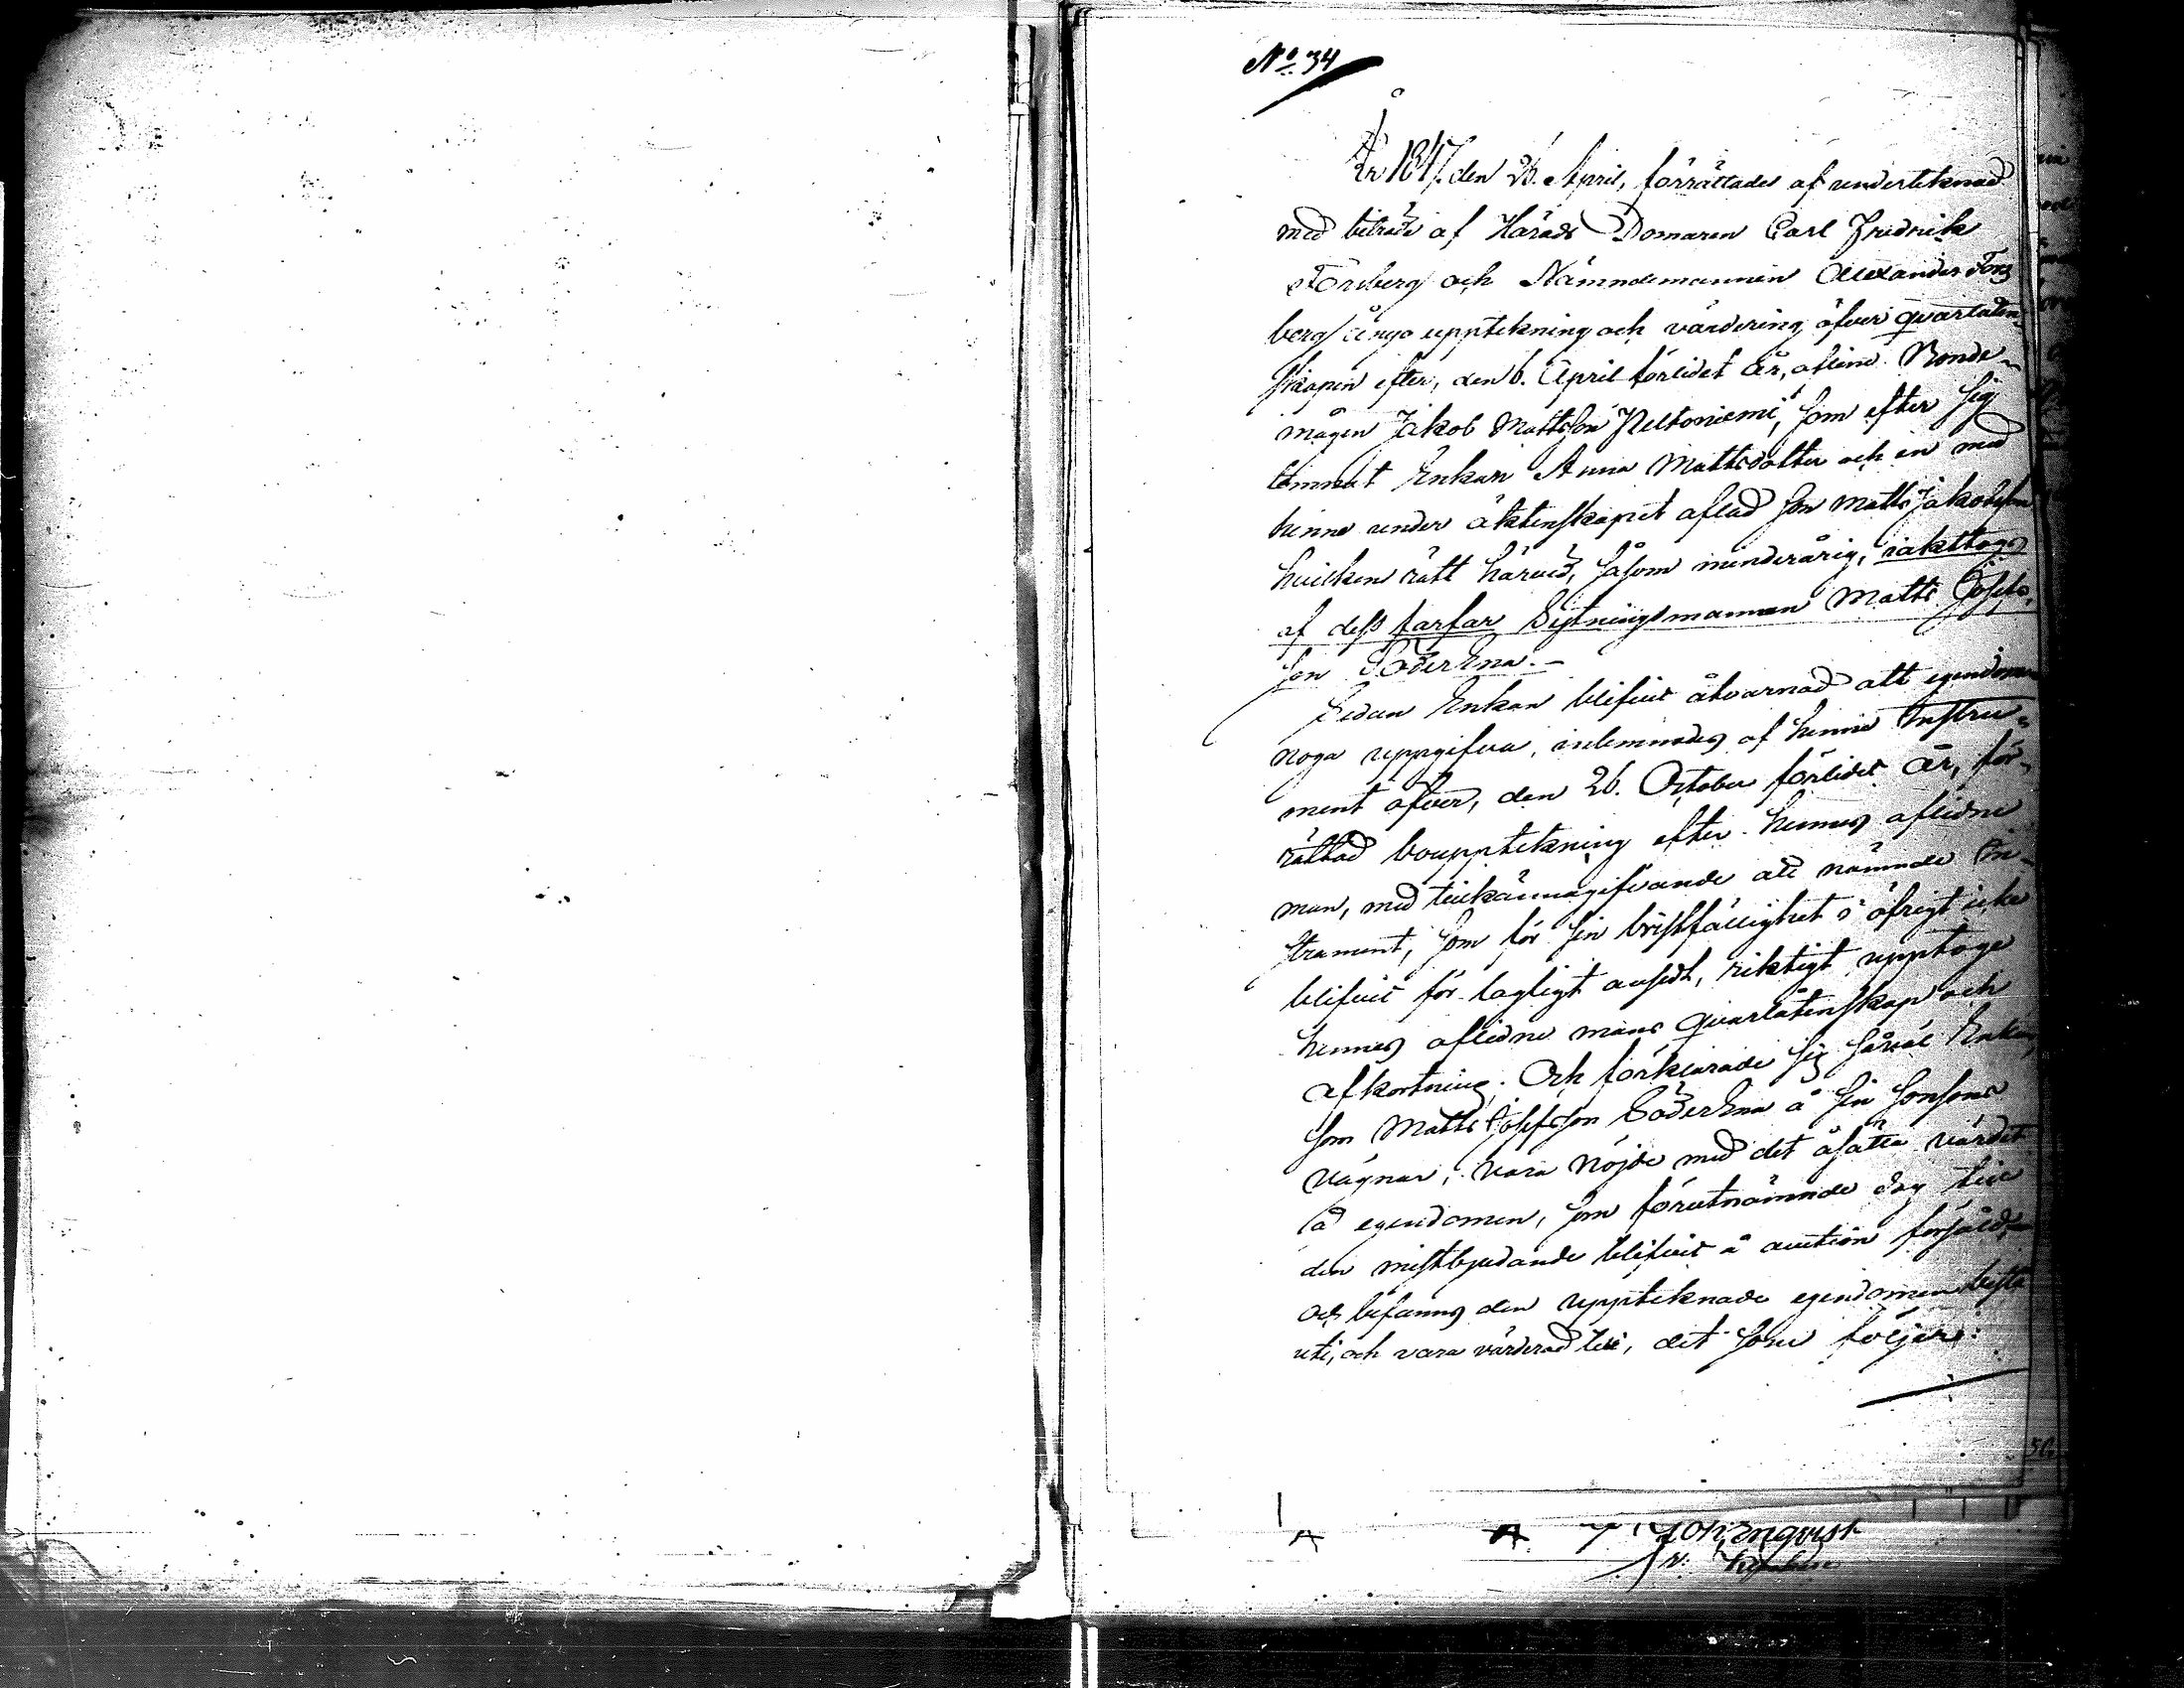 No 34
År 1847. den 26. April, förrättades af undertecknad
med biträde af Härads Domaren Carl Fredrik
Forsberg och Nämndemannen Alexander Fors
berg ånyo uppteckning och värdering öfver qvarlåten-
skapen efter, den 6. April förlidet År, aflidne Bonde-
mågen Jakob Mattsson Peltoniemi, som efter sig
lemnat Enkan Anna Mattsdotter och en med
henne under äktenskapet aflad son Matts Jakobsson
hvilken rätt härvid, såsom minderårig, iakttogs
af dess farfar Sytningsmannen Matts Josefs-
son Söder Ena.-
Sedan Enkan blifvit åtvarnad att egendomen
noga uppgifva, inlemnades af henne Instru-
ment öfver, den 26. October förlidet År, för-
rättad bouppteckning efter hennes aflidne
man, med tillkännagifvande att nämnde In-
strument, som för sin bristfällighet i öfrigt icke
blifvit för lagligt ansedt, riktigt upptoge
hennes aflidne mans qvarlåtenskap och
afkortning. Och förklarade sig såväl Enkan,
som Matts Josefsson Söder Ena å sin Sonsons
vägnar, vara nöjde med det åsatta värdet
å egendomen, som förutnämnde dag till
den mestbjudande blifvit å auction försåld,
och befanns den upptecknade egendomen bestå
uti, och vara värderad till, det som följer: